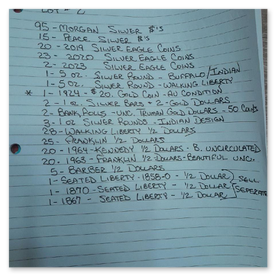 LOT - 2
95 - MORGAN SILVER $'S
15 - PEACE SILVER $'S
20 - 2019 SILVER EAGLE COINS
23 - 2020 SILVER EAGLE COINS
2 - 2023 SILVER EAGLE COINS
1 - 5 OZ SILVER ROUND - BUFFALO/INDIAN
1 - 5 OZ. SILVER ROUND - WALKING LIBERTY
* 1 - 1924 - $20 GOLD COIN - AU CONDITION
2 - 1 OZ SILVER BARS + 2 - GOLD DOLLARS
2 - BANK ROLLS - UNC. TRUMAN GOLD DOLLARS - 50 COINS
3 - 1 OZ SILVER ROUNDS - INDIAN DESIGN
28 - WALKING LIBERTY ½ DOLLARS
25 - FRANKLIN ½ DOLLARS
20 - 1964 - KENNEDY ½ DOLLARS - B. UNCIRCULATED
20 - 1963 - FRANKLIN ½ DOLLARS - BEAUTIFUL UNC.
5 - BARBER ½ DOLLARS
1 - SEATED LIBERTY - 1858-O - ½ DOLLAR
1 - 1870 - SEATED LIBERTY - ½ DOLLAR
1 - 1867 - SEATED LIBERTY - ½ DOLLAR
SELL
SEPERATE